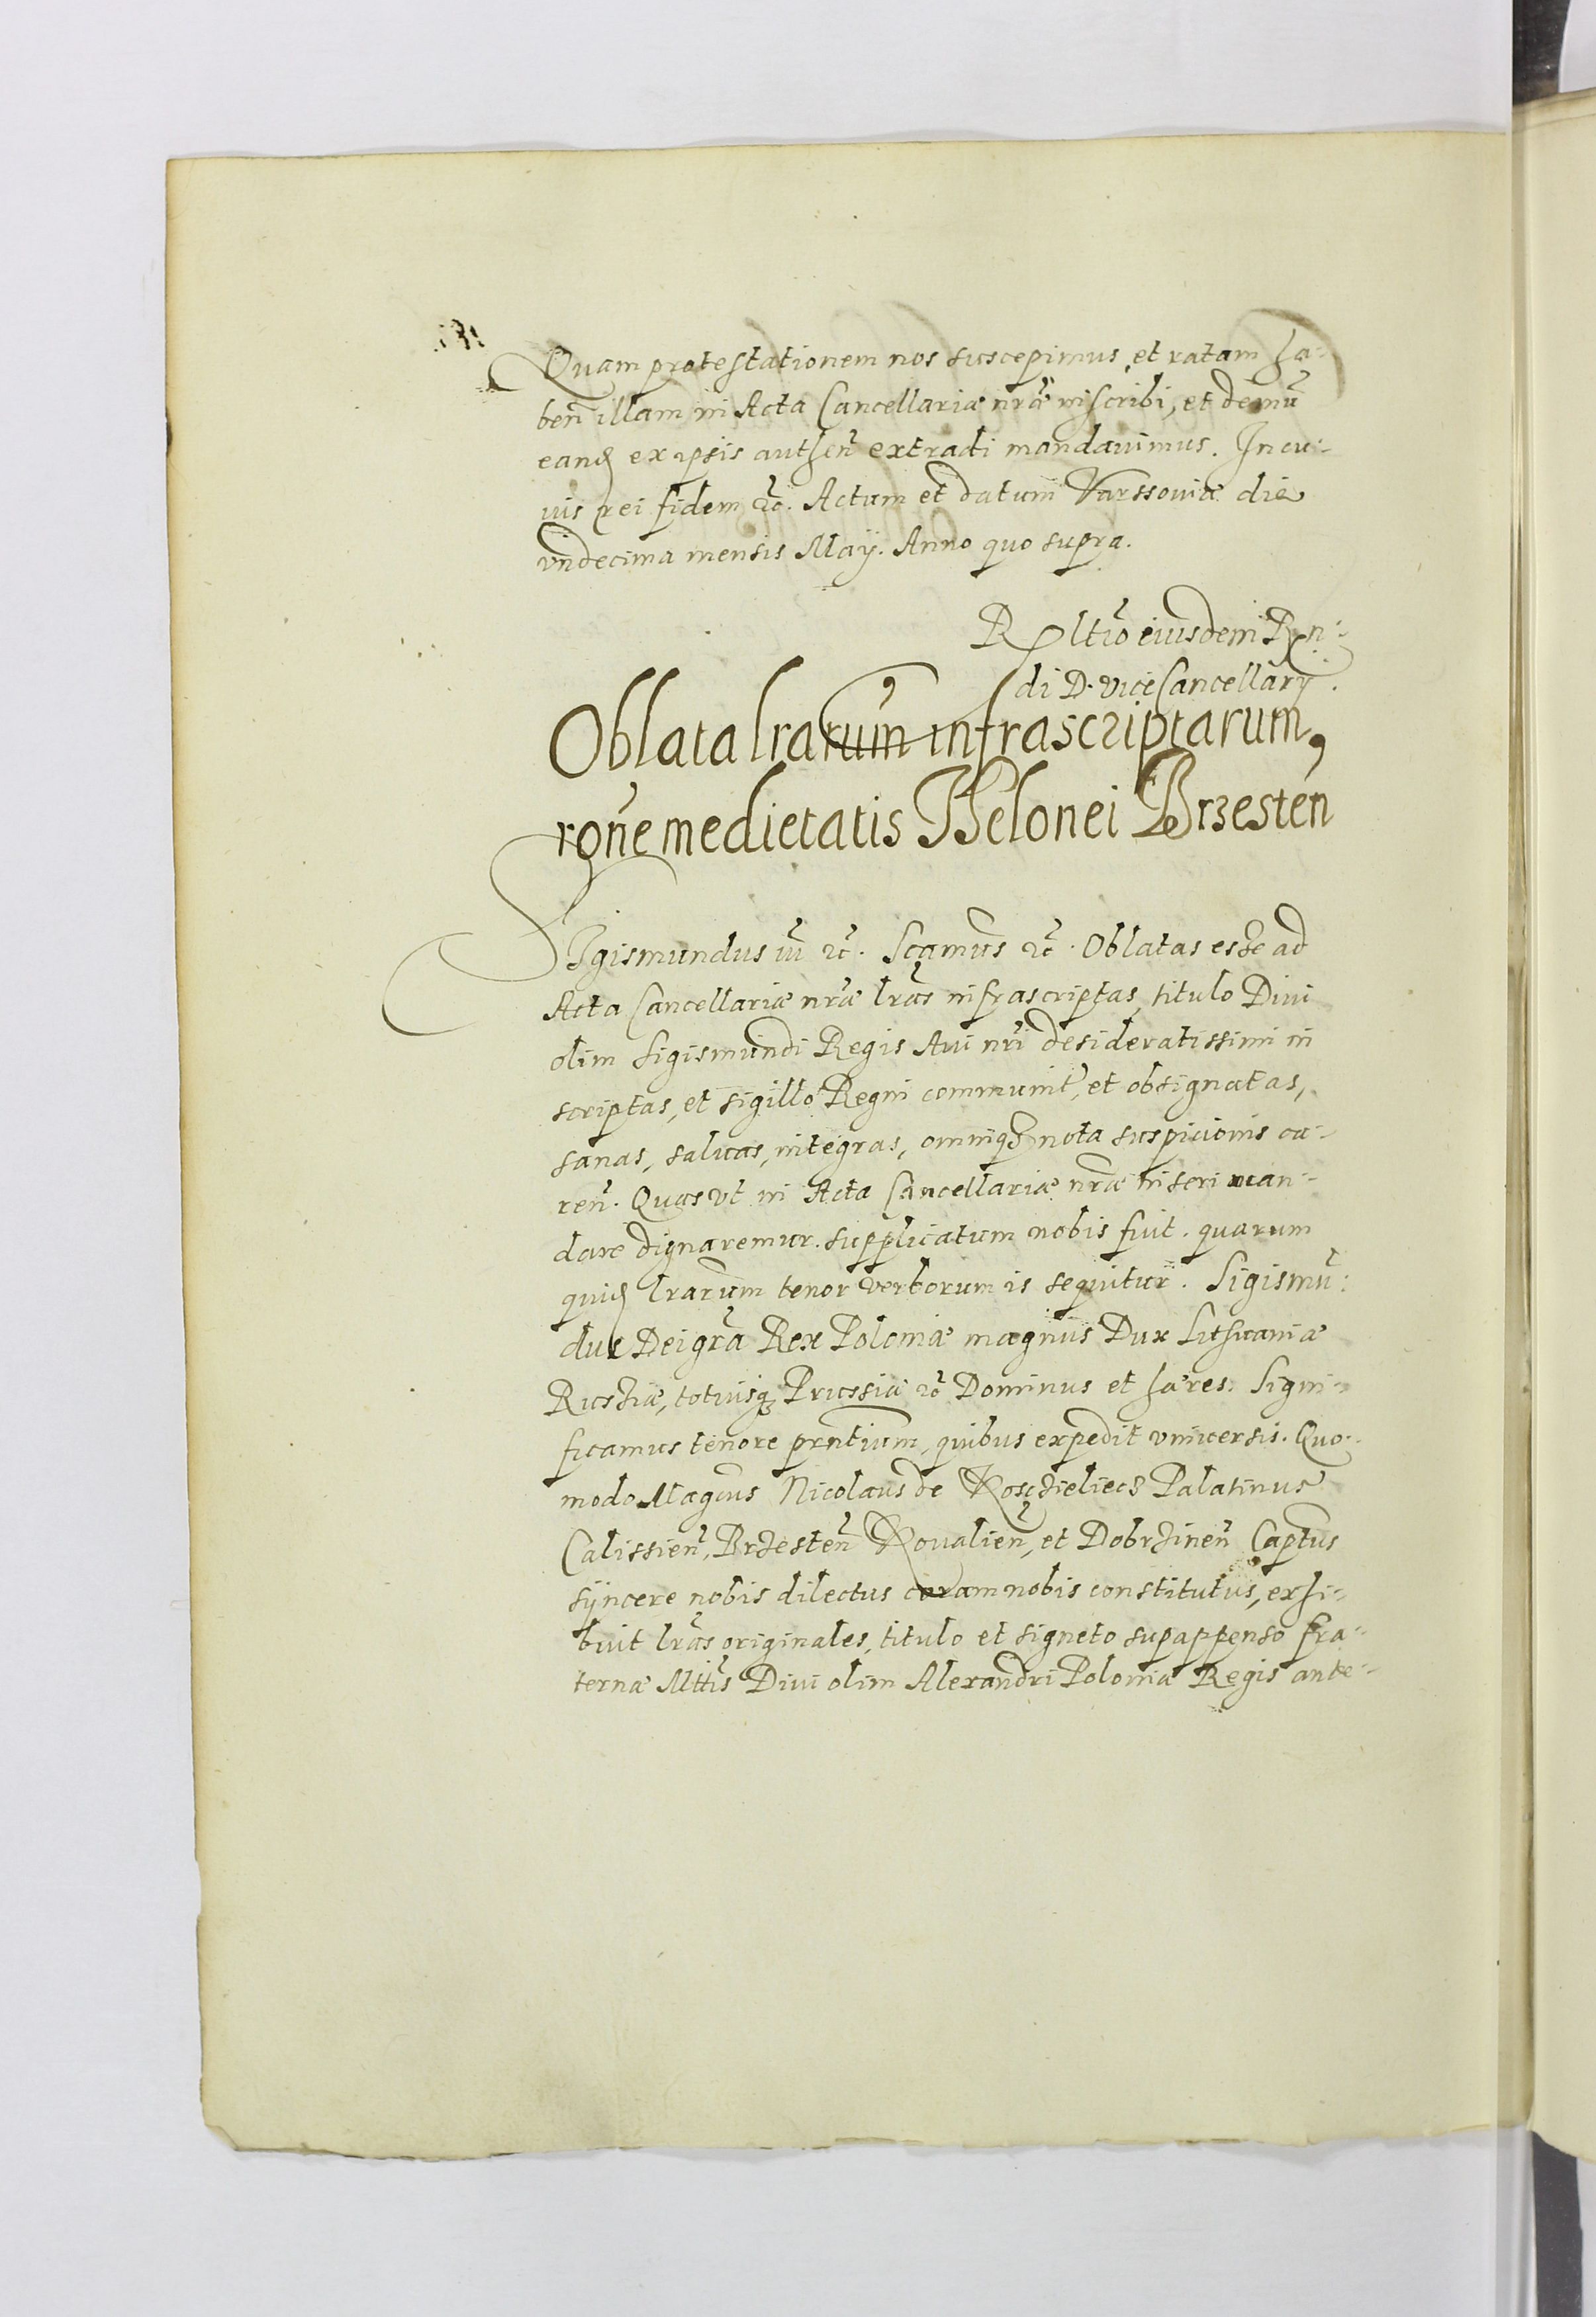 Quam protestationem nos suscepimus, et ratam ha-
ben̄ illam in Acta Cancellariæ nr̄æ inscribi, et demū
eand ex ipsis authen̄ extradi mandauimus. In cu-
ius rei fidem etc̄. Actum et datum Varssouiæ die
vndecima mensis Maÿ. Anno quo supra.
Rltīo eiusdem Rn-
di D. vice Cancellarÿ.
Oblata lrarum infrascriptarum,
rōne medietatis Thelonei Brzestēn
SIgismundus iiī etc̄. Scamus etc̄. Oblatas esse ad
Acta Cancellariæ nr̄æ lrās infrascriptas, titulo Diui
olim Sigismundi Regis Aui nrī desideratissimi in
scriptas, et sigillo Regni communit, et obsignatas,
sanas, saluas, integras, omniq3 nota suspicionis ca-
ren̄. Quas vt in Acta Cancellariæ nræ inseri man-
dare dignaremur. supplicatum nobis fuit. quarum
quid lrarum tenor verborum is sequitur. Sigismū-
dus Dei grā Rex Poloniæ magnus Dux Lithuaniæ
Russiæ, totiusq3 Prussiæ etc̄ Dominus et hæres. Signi-
ficamus tenore prntium, quibus expedit vniuersis. Quo-
modo Magcus Nicolaus de Kosczieliecz Palatinus
Calissien̄, Brzesten̄ Kovalien̄, et Dobrzinen̄ Captus
syncere nobis dilectus coram nobis constitutus, exhi-
buit lrās originales, titulo et signeto supappenso fra-
ternæ Mttis Diui olim Alexandri Poloniæ Regis ante-